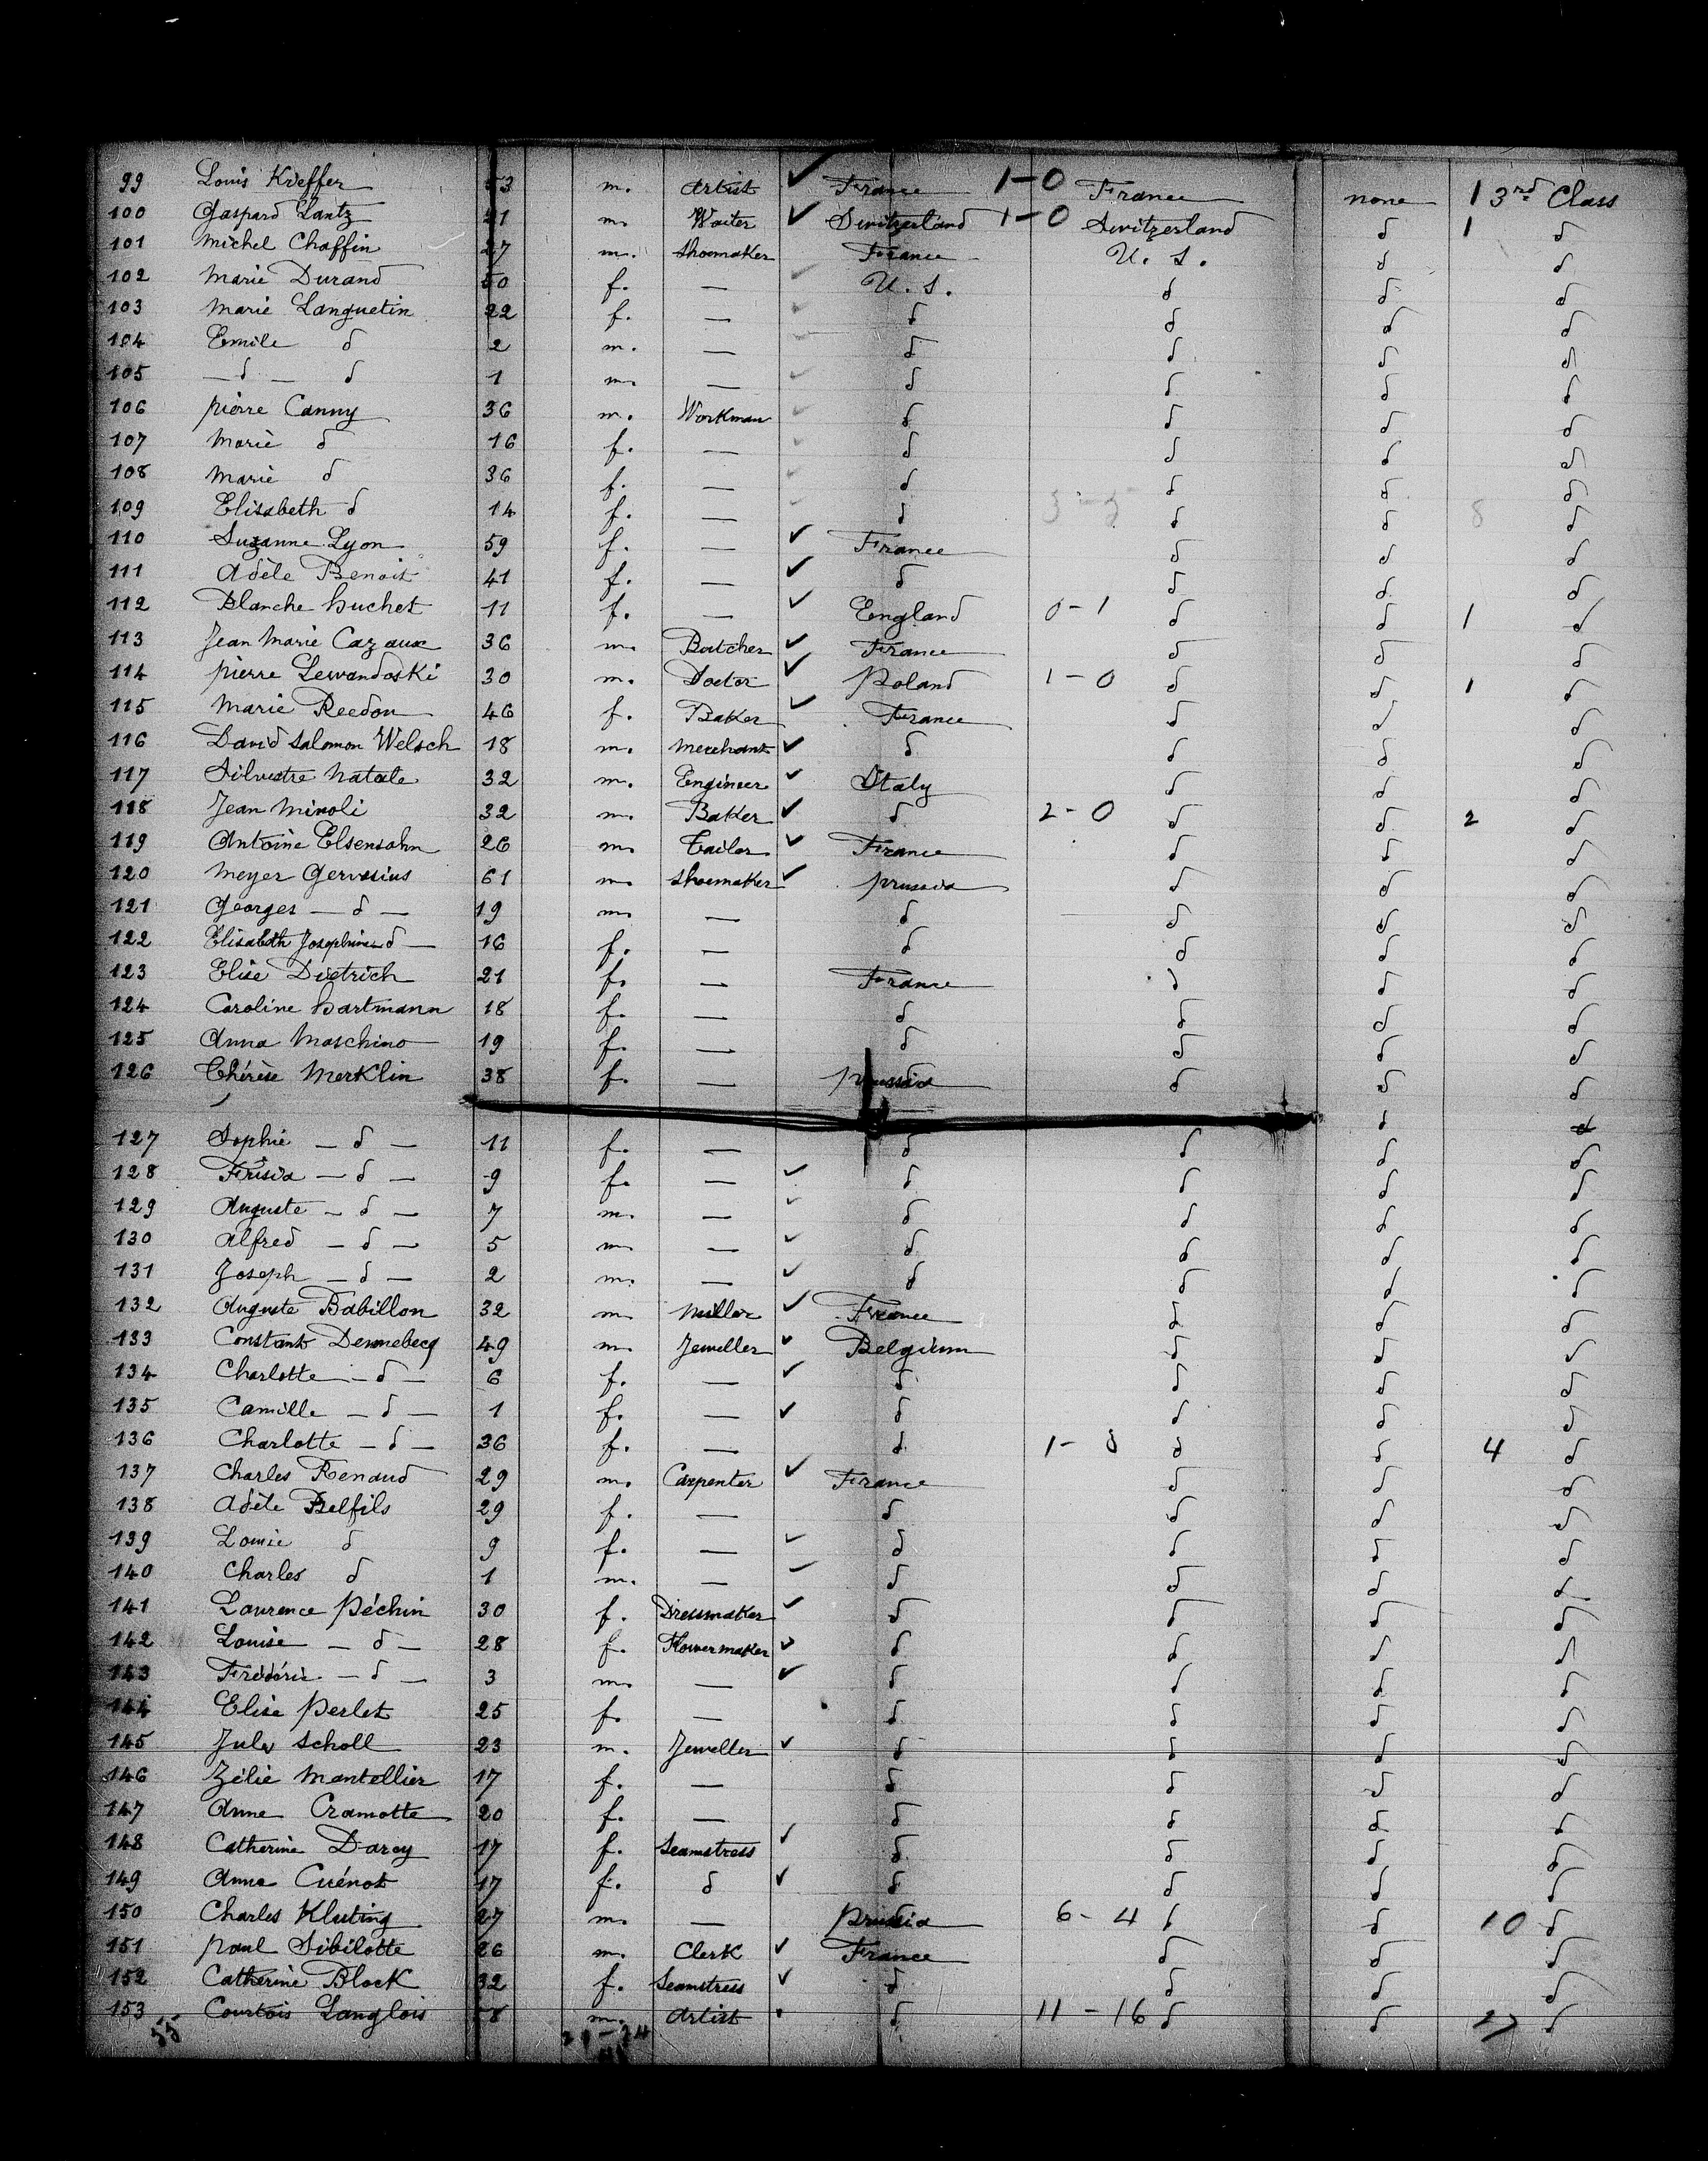 99 Louis Kieffer 53 m. Artist ✓ France 1-0 France none 1 3rd Class
100 Gaspard Lantz 21 m. Waiter ✓ Switzerland 1-0 Switzerland d 1 d
101 Michel Chaffin 27 m. Shoemaker France U. S. d d
102 Marie Durand 50 f. — U. S. d d d
103 Marie Languetin 22 f. — d d d d
104 Emile d 2 m. — d d d d
105 — d — d 1 m. — d d d d
106 Pierre Canny 36 m. Workman d d d d
107 Marie d 16 f. — d d d d
108 Marie d 36 f. — d d d d
109 Elisabeth d 14 f. — d 3-5 d d 8 d
110 Suzanne Lyon 59 f. — ✓ France d d d
111 Adèle Benoit 41 f. — ✓ d d d d
112 Blanche Huchet 11 f. — ✓ England 0-1 d d 1 d
113 Jean Marie Cazaux 36 m. Butcher ✓ France d d d
114 Pierre Lewandoski 30 m. Doctor ✓ Poland 1-0 d d 1 d
115 Marie Reedon 46 f. Baker ✓ France d d d
116 David Salomon Welsch 18 m. Merchant ✓ d d d d
117 Silvestre Natale 32 m. Engineer ✓ Italy d d d
118 Jean Minoli 32 m. Baker ✓ d 2-0 d d 2 d
119 Antoine Elsensohn 26 m. Tailor ✓ France d d d
120 Meyer Gervasius 61 m. Shoemaker ✓ Prussia d d d
121 Georges — d — 19 m. — d d d d
122 Elisabeth Josephine d — 16 f. — d d d d
123 Elise Dietrich 21 f. — France d d d
124 Caroline Hartmann 18 f. — d d d d
125 Anna Maschino 19 f. — d d d d
126 Thérèse Merklin 38 f. — Prussia d d d
d d
127 Sophie — d — 11 f. — d d d d
128 — d — 9 f. — ✓ d d d d
129 Auguste — d — 7 m. — ✓ d d d d
130 Alfred — d — 5 m. — ✓ d d d d
131 Joseph — d — 2 m. — ✓ d d d d
132 Auguste Babillon 32 m. Miller ✓ France d d d
133 Constant Dennebecq 49 m. Jeweller ✓ Belgium d d d
134 Charlotte — d — 6 f. — ✓ d d d d
135 Camille — d — 1 f. — ✓ d d d d
136 Charlotte — d — 36 f. — d 1-3 d d 4 d
137 Charles Renaud 29 m. Carpenter ✓ France d d d
138 Adèle Belfils 29 f. — d d d d
139 Louise d 9 f. — ✓ d d d d
140 Charles d 1 m. — ✓ d d d d
141 Laurence Péchin 30 f. Dressmaker ✓ d d d d
142 Louise — d — 28 f. Flowermaker ✓ d d d d
143 Frédéric — d — 3 m. — ✓ d d d d
144 Elise Perlet 25 f. — d d d d
145 Jules Scholl 23 m. Jeweller ✓ d d d d
146 Zélie Mantellier 17 f. — d d d d
147 Anne Cramotte 20 f. — d d d d
148 Catherine Darcy 17 f. Seamstress ✓ d d d d
149 Anna Cuénot 17 f. d ✓ d d d d
150 Charles Kluting 27 m. — Prussia 6-4 d d 10 d
151 Paul Sibilotte 26 m. Clerk ✓ France d d d
152 Catherine Block 32 f. Seamstress ✓ d d d d
153 Courtois Langlois 58 m. Artist d 11-16 d d 27 d
55